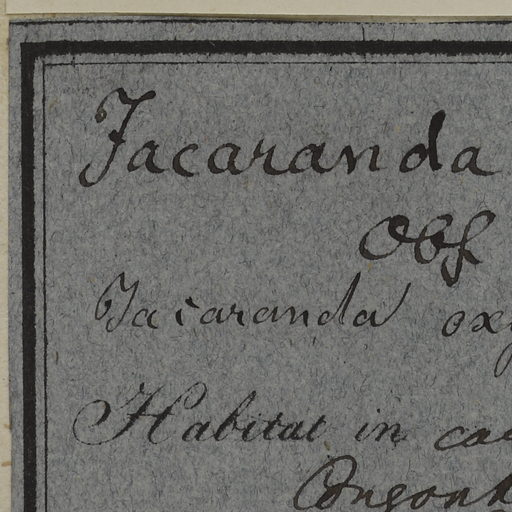 Jacaranda
Obs
Jacaranda oxy
Habitat in ca
Congonh